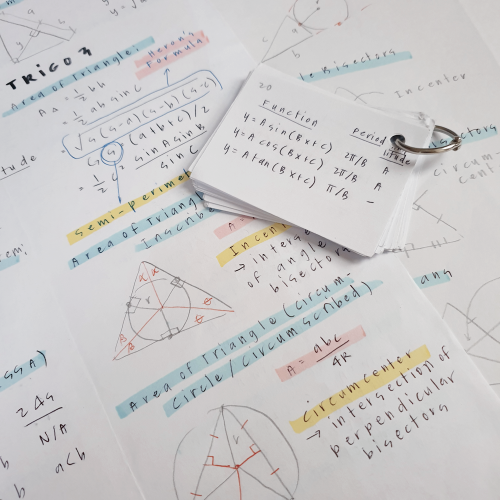 TRIGO 3
Area of Triangle:
Heron's
Formula
A△ = ½ bh
= ½ ab sin C
= √s(s-a)(s-b)(s-c)
(a+b+c)/2
= ½ sin A sin B
sin C
semi-perimet
Area of Triang
Inscrib
Incen
→ inters
of angle
bisectors
r
α α
θ
θ
β
β
Area of Triangle (circum-
Circle/Circumscribed)
A = abc
4R
Circumcenter
→ intersection of
perpendicular
bisectors
r
20
Function
period
y = A sin(Bx+c) 2π/B A
y = A cos(Bx+c) 2π/B A
y = A tan(Bx+c) π/B -
le Bisectors
Incenter
circum
cent
ang
itude
SSA)
N/A
b a<b